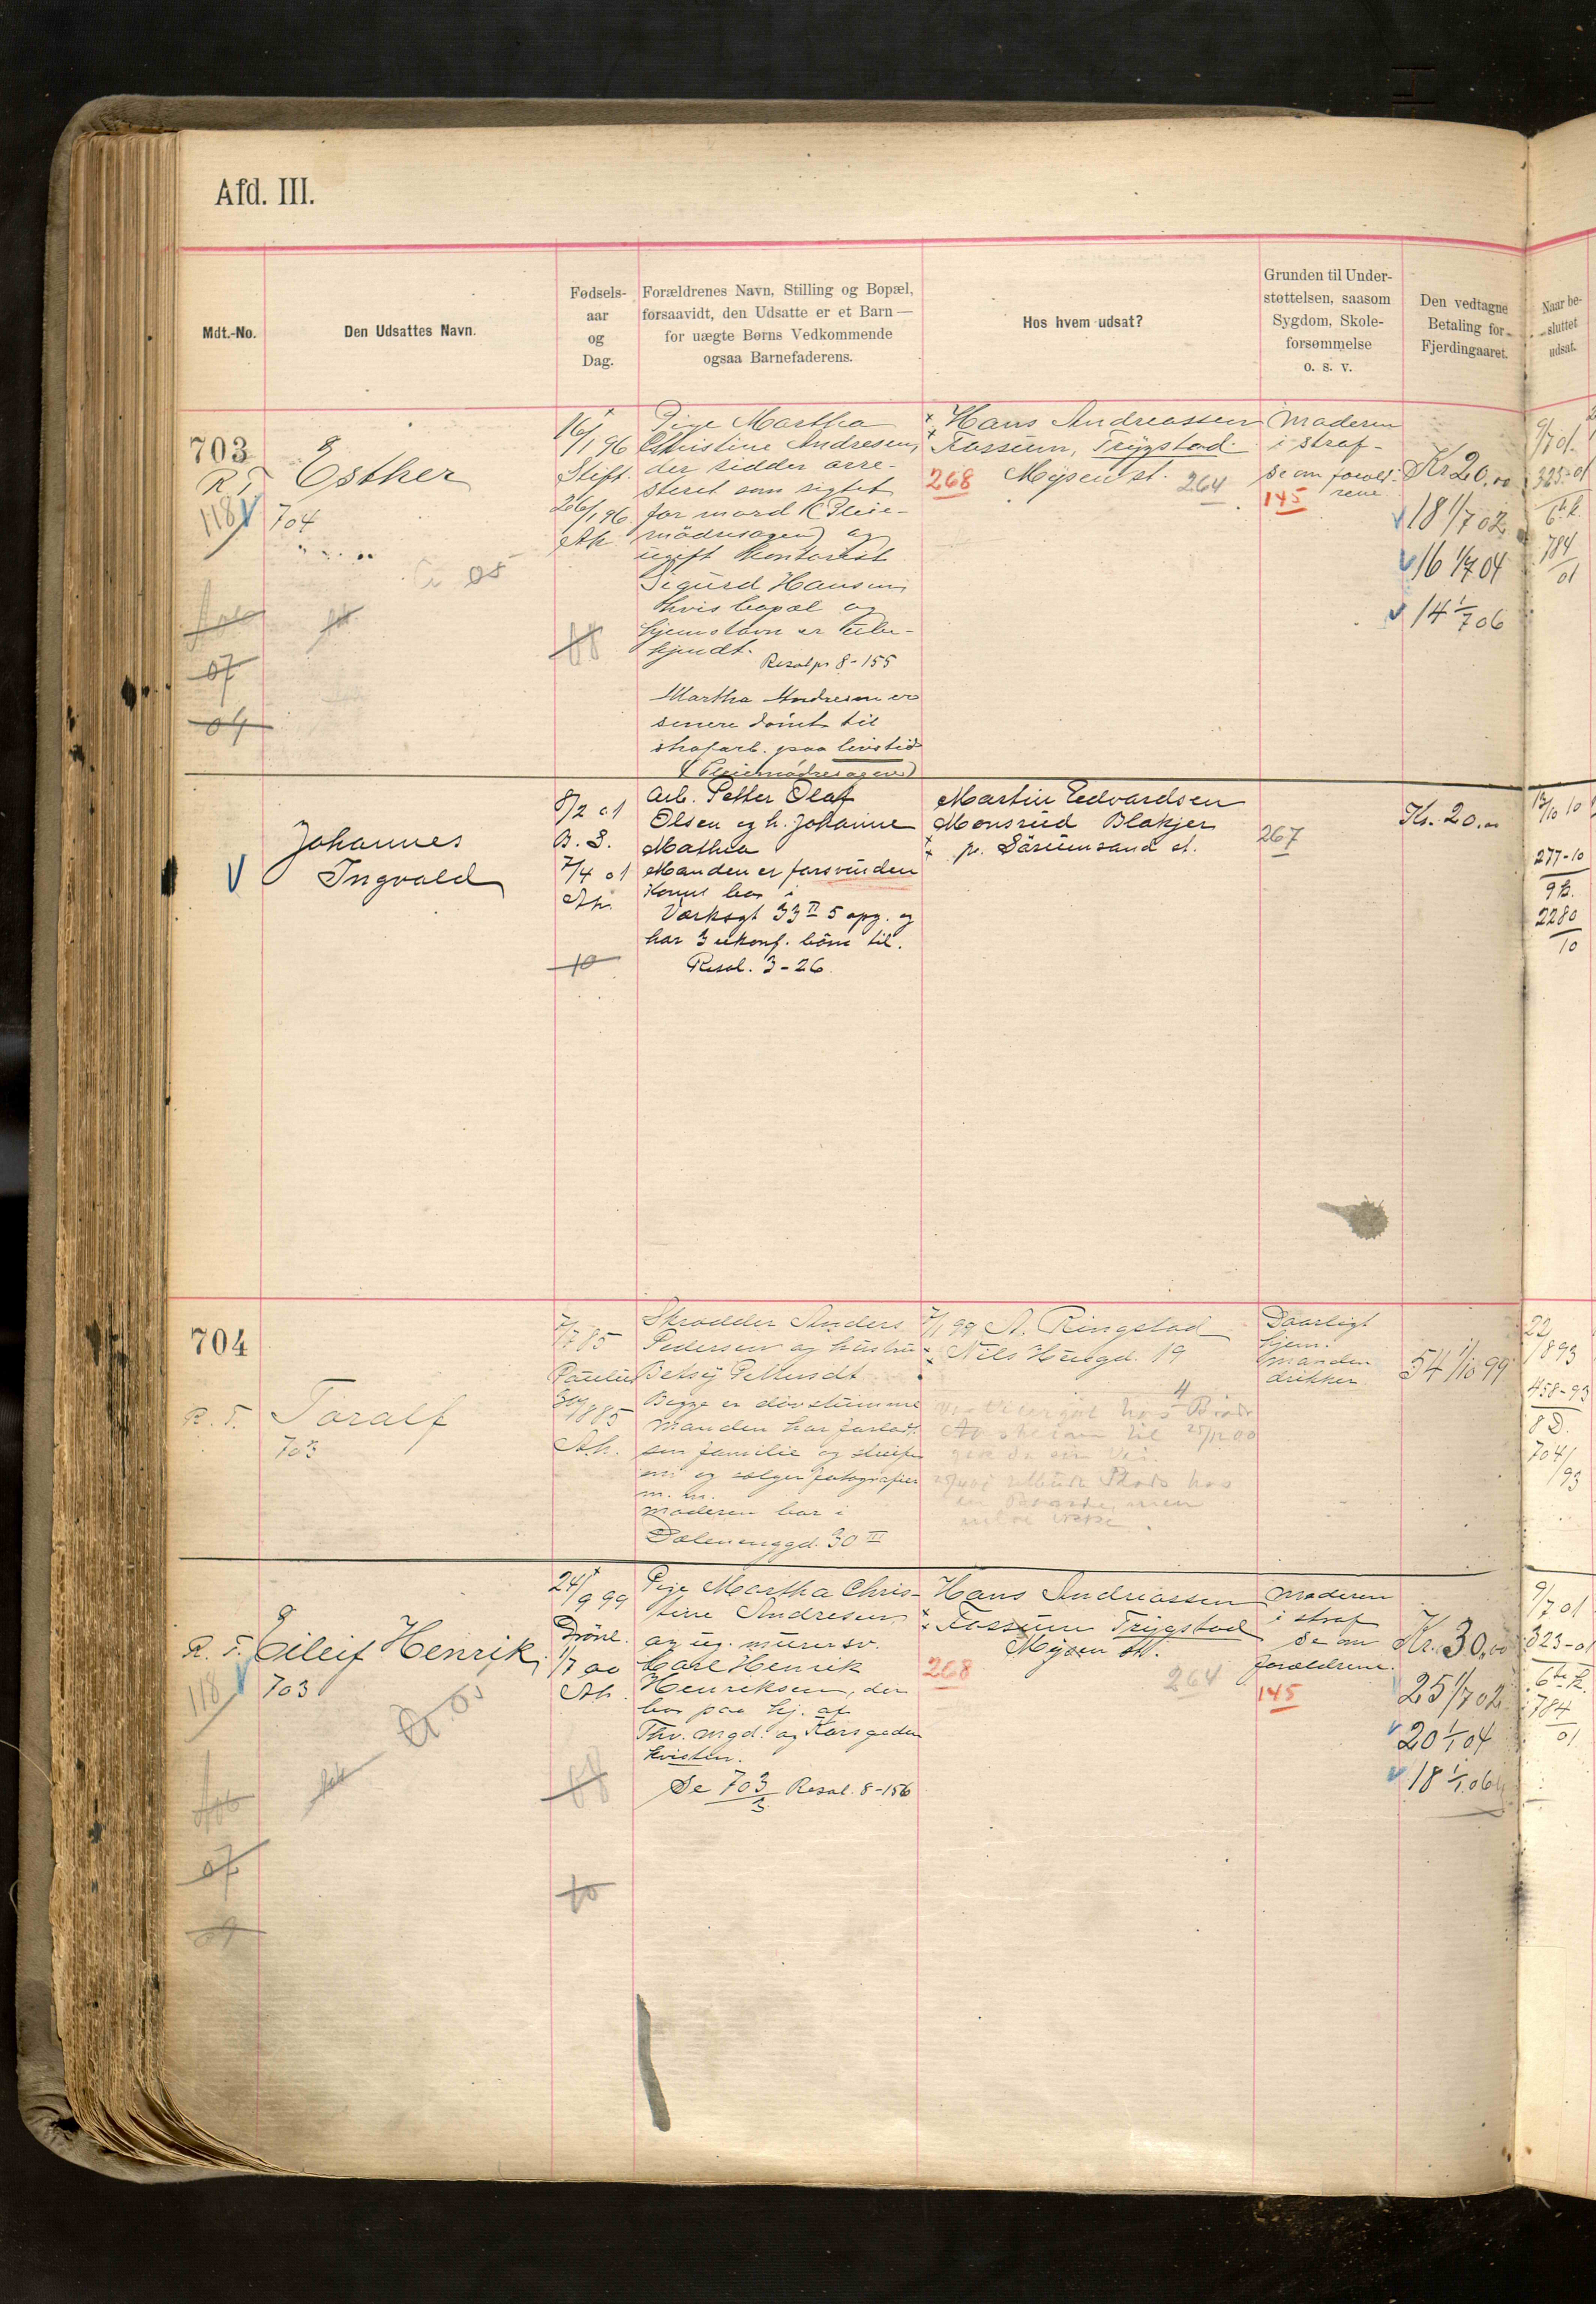 Afd. III.
Mdt.-No.
Den Udsattes Navn.
Fødsels-
aar
og
Dag.
Forældrenes Navn, Stilling og Bopæl,
forsaavidt, den Udsatte er et Barn —
for uægte Børns Vedkommende
ogsaa Barnefaderens.
Hos hvem udsat?
Grunden til Under-
støttelsen, saasom
Sygdom, Skole-
forsømmelse
o. s. v.
Den vedtagne
Betaling for
Fjerdingaaret.
Naar be-
sluttet
udsat.
703
R. T.
118
Esther
704
05
07
04
16/1 96
Stift.
26/1 96
Ah.
Pige Martha
Christine Andresen,
der sidder arre-
steret som sigtet
for mord (Pleie-
mödresagen) og
ugift kontorist
Sigurd Hansen,
hvis bopæl og
hjemstavn er ube-
kjendt.
Resol pr 8-155
Martha Andresen er
senere dömt til
strafarb. paa livstid
(Pleiemödresagen)
Hans Andreassen
Fossum, Trygstad
268 Mysen st. 264
Moderen
i straf-
Se om forold-
rene
145
Kr 20.00
18 1/7 02
16 1/7 04
14 1/7 06
9/7 01
325-01
6te k.
784
01
Johannes
Ingvald
8/2 01
B. S.
7/4 01
Ah.
10
Arb. Petter Olaf
Olsen og h. Johanne
Mathea
Manden er forsvunden
Konen bor i
Värksgt 33 II 5 opg. og
har 3 ukonf. börn til.
Resol. 3-26.
Martin Edvardsen
Monsrud Blakjer
pr. Sörumsand st.
267
Kr. 20.00
13/10 10
277-10
9 k.
2280
10
704
R. T.
Toralf
703
7/7 85
Paulus
30/8 1885
Ah.
Skrædder Anders
Pedersen og hustru
Betsy
Begge er dövstumme
Manden har forladt
sin familie og streifer
om og sælger fotografier
m. m.
Moderen bor i
Dælenenggd. 30 III
7/1 99 A. Ringstad
Nils Huusgd. 19
4
hos
til 25/12 00
hos
ikke
Daarligt
hjem.
Manden
drikker
54 1/10 99
22
1893
458-93
8 D.
704/
/93
R. T. Eileif Henrik
118
703
07
24/9 99
Grönl.
1/7 00
Ah.
10
Pige Martha Chris-
tine Andresen
og ug. murersv.
Carl Henrik
Henriksen, der
bor paa hj. af
Thv. Mgd. og Korsgaden
kvisten.
Se 703/3 Resol. 8-156
Hans Andreassen
Fossum Trygstad
Mysen st.
268
264
Moderen
i straf
Se om
foroldrene.
145
Kr. 30.00
25 1/7 02
20 1/1 04
18 1/1 06
9/7 01
323-01
6te k.
784
01